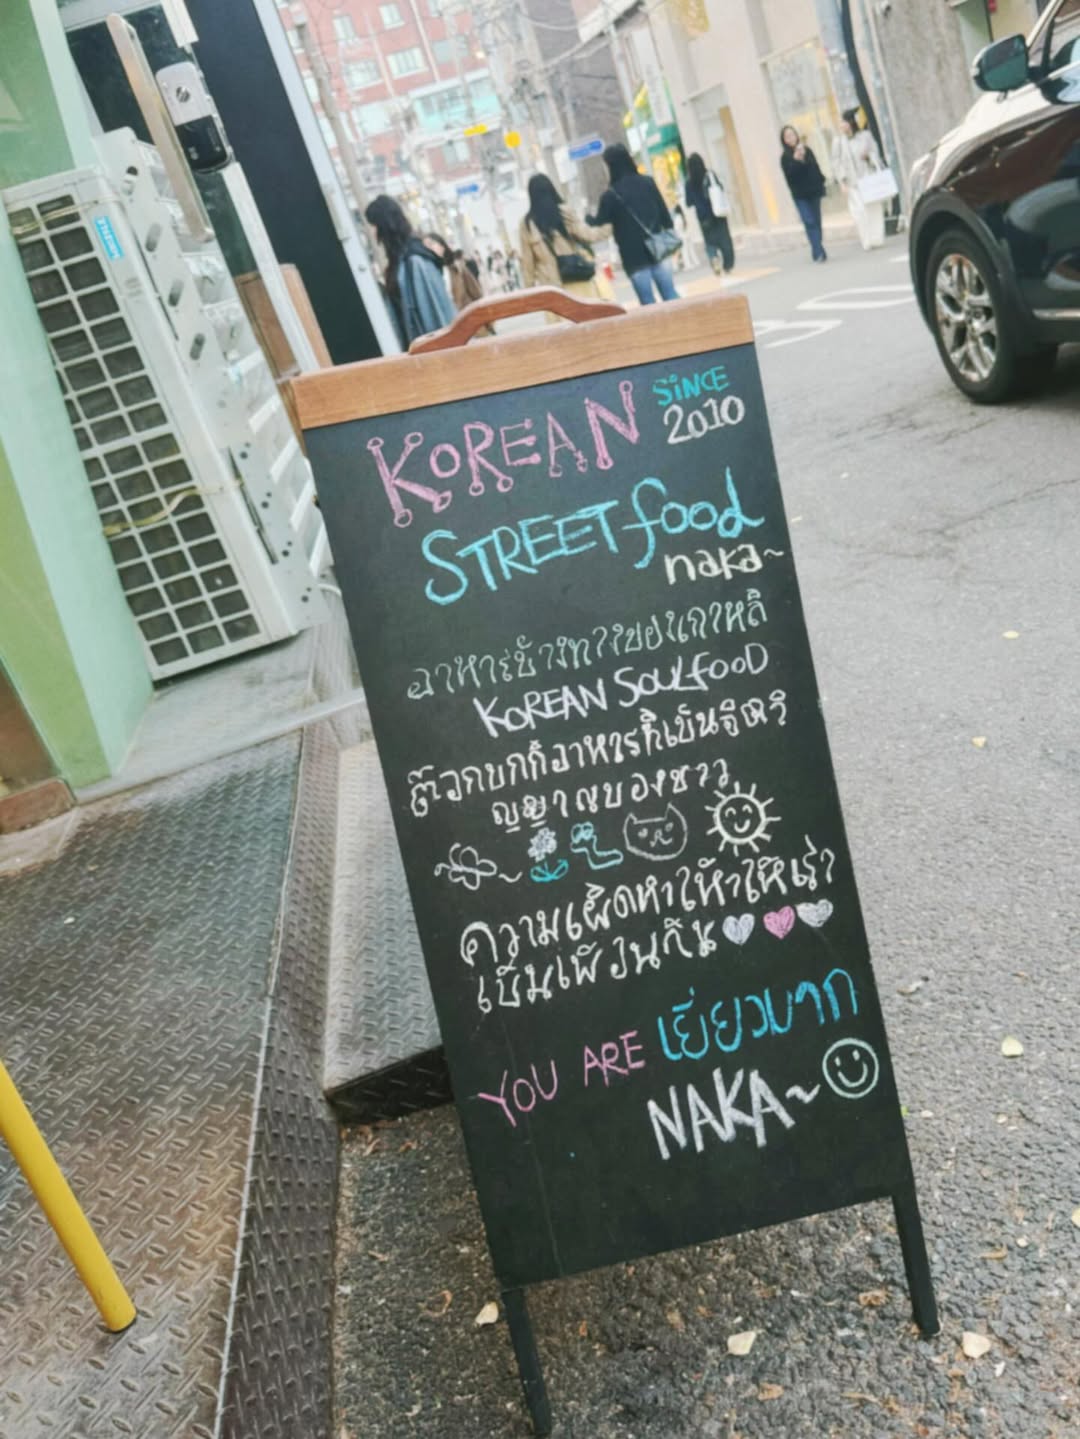 KOREAN SINCE 2010
STREET food
naka~
อาหารข้างทางของเกาหลี
KOREAN SOULfOOD
ต๊อกบกกีอาหารที่เป็นจิตวิ
ญญาณของชาว
ความเผ็ดทำให้
เป็นเพื่อนกัน
YOU ARE เยี่ยวมาก
NAKA~